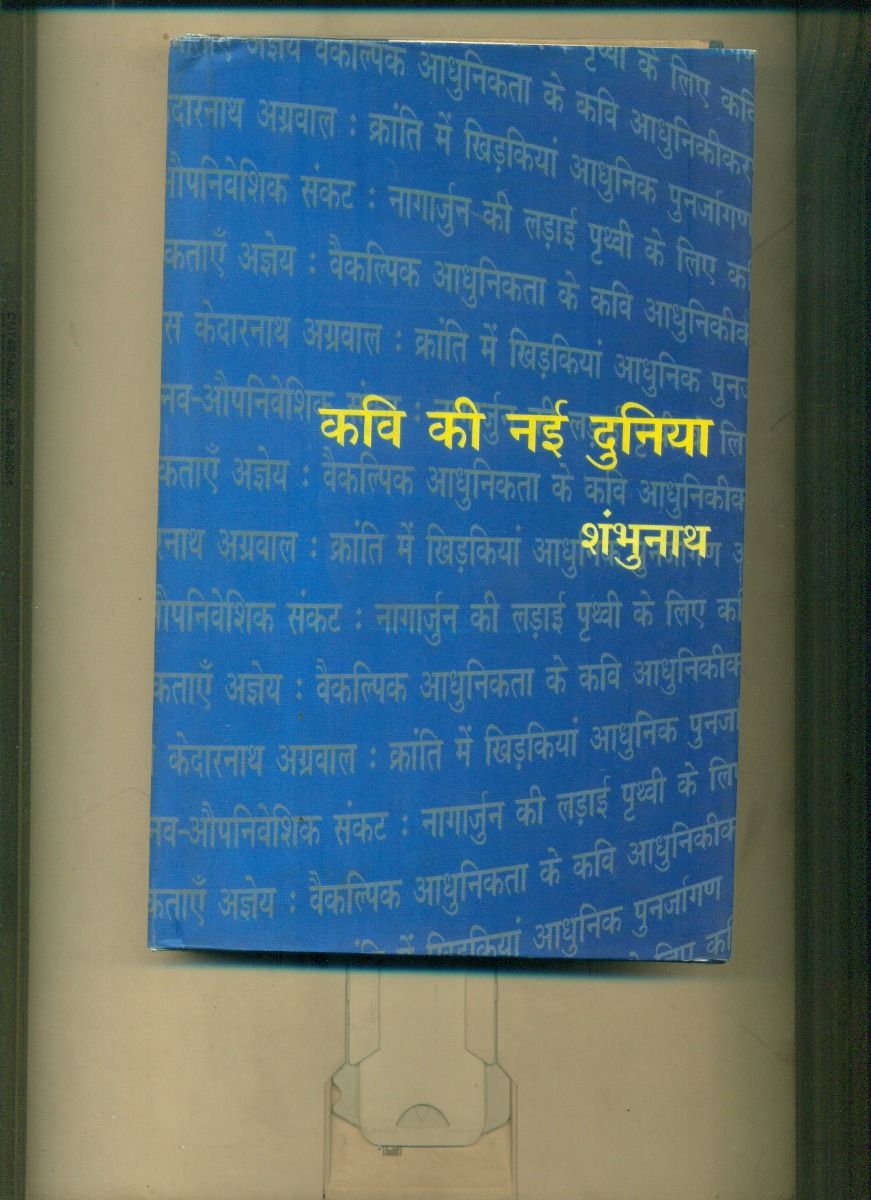 अज्ञेय वैकल्पिक आधुनिकता के कवि आधुनिकीकर
पृथ्वी के लिए कवि
दारनाथ अग्रवाल : क्रांति में खिड़कियां आधुनिक पुनर्जागण
औपनिवेशिक संकट : नागार्जुन की लड़ाई पृथ्वी के लिए क
कताएँ अज्ञेय : वैकल्पिक आधुनिकता के कवि आधुनिकीक
स केदारनाथ अग्रवाल : क्रांति में खिड़कियां आधुनिक पुन
नव-औपनिवेशिक
कवि की नई दुनिया
कताएँ अज्ञेय : वैकल्पिक आधुनिकता के कवि आधुनिकीक
शंभुनाथ
रनाथ अग्रवाल : क्रांति में खिड़कियां
औपनिवेशिक संकट : नागार्जुन की लड़ाई पृथ्वी के लिए कवि
कताएँ अज्ञेय : वैकल्पिक आधुनिकता के कवि आधुनिकीक
केदारनाथ अग्रवाल : क्रांति में खिड़कियां आधुनिक पुनर्जा
नव-औपनिवेशिक संकट : नागार्जुन की लड़ाई पृथ्वी के लि
कताएँ अज्ञेय : वैकल्पिक आधुनिकता के कवि आधुनिकीक
में खिड़कियां आधुनिक पुनर्जागण